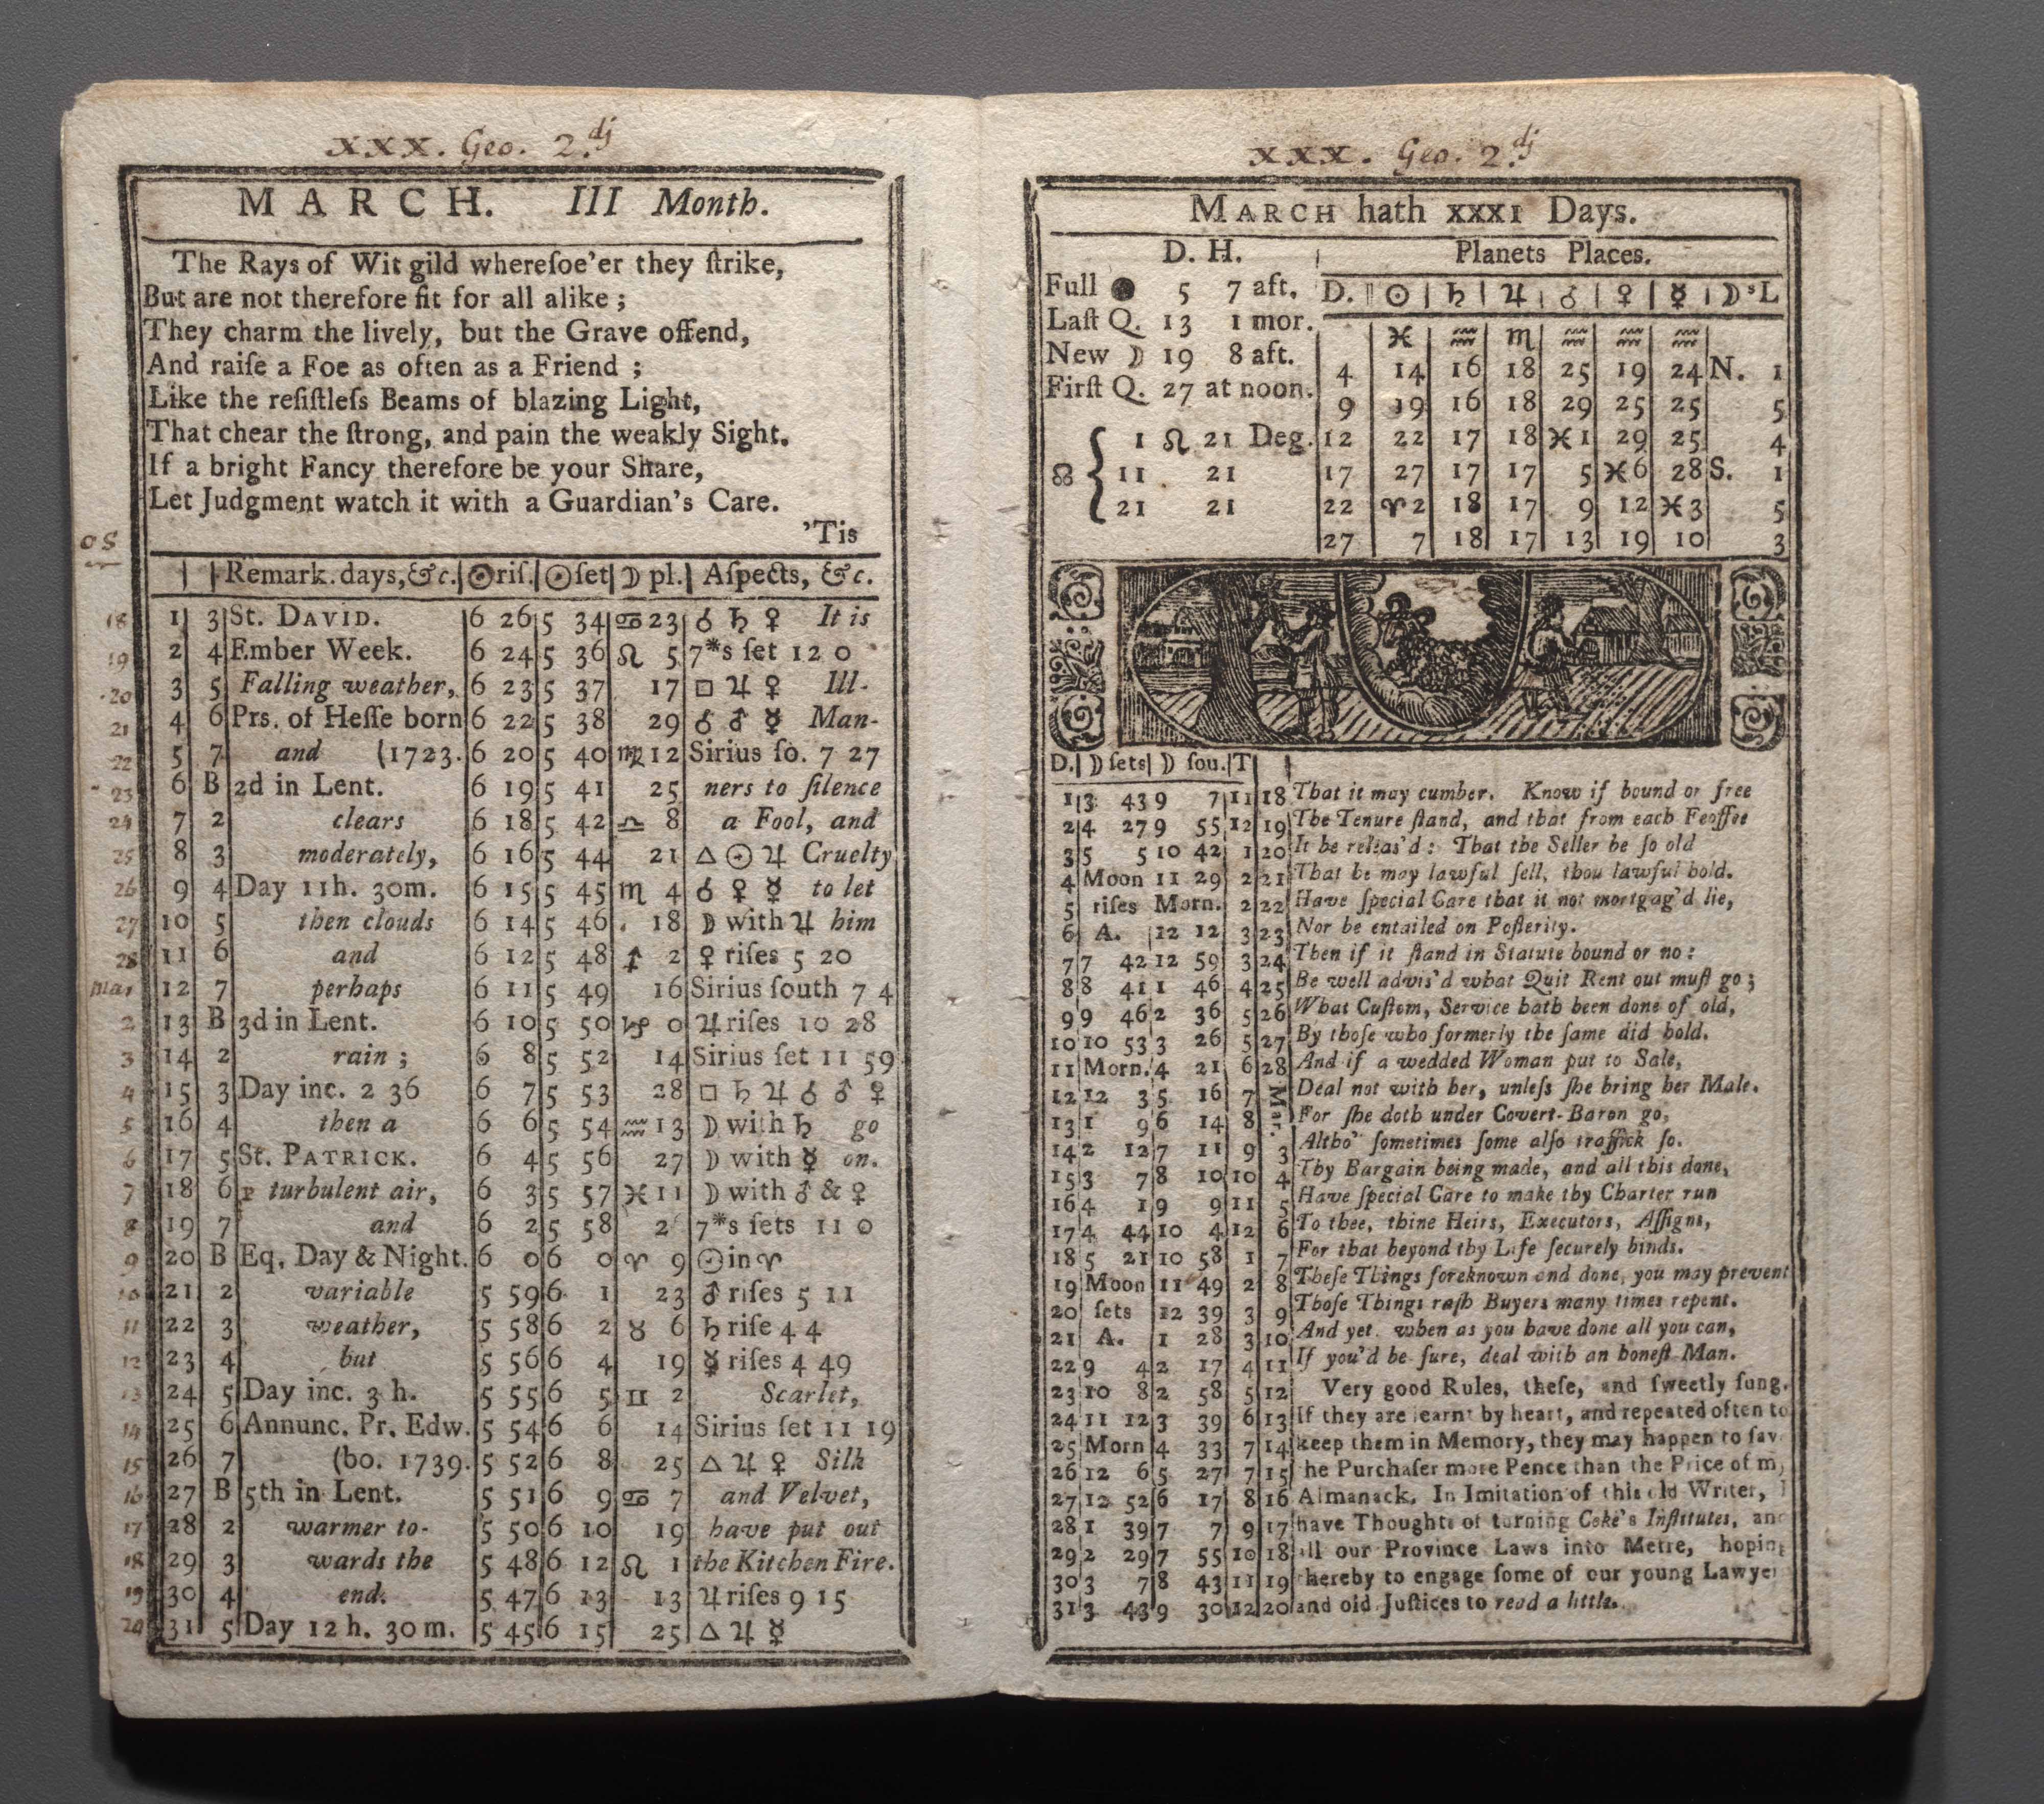 XXX. Geo. 2.dj
MARCH. III Month.
The Rays of Wit gild whereſoe'er they ſtrike,
But are not therefore fit for all alike ;
They charm the lively, but the Grave offend,
And raiſe a Foe as often as a Friend ;
Like the reſiſtleſs Beams of blazing Light,
That chear the ſtrong, and pain the weakly Sight.
If a bright Fancy therefore be your Share,
Let Judgment watch it with a Guardian's Care.
'Tis
OS
Remark. days, &c. ☉riſ. ☉ſet ☽ pl. Aſpects, &c.
18 1 3 St. DAVID. 6 26 5 34 ♋ 23 ☌ ♄ ♀ It is
19 2 4 Ember Week. 6 24 5 36 ♌ 5 7*s ſet 12 0
20 3 5 Falling weather, 6 23 5 37 17 □ ♃ ♀ Ill-
21 4 6 Prs. of Heſſe born 6 22 5 38 29 ☌ ♂ ☿ Man-
22 5 7 and (1723. 6 20 5 40 ♍ 12 Sirius ſo. 7 27
23 6 B 2d in Lent. 6 19 5 41 25 ners to ſilence
24 7 2 clears 6 18 5 42 ♎ 8 a Fool, and
25 8 3 moderately, 6 16 5 44 21 △ ☉ ♃ Cruelty
26 9 4 Day 11h. 30m. 6 15 5 45 ♏ 4 ☌ ♀ ☿ to let
27 10 5 then clouds 6 14 5 46 18 ☽ with ♃ him
28 11 6 and 6 12 5 48 ♐ 2 ♀ riſes 5 20
Mar 12 7 perhaps 6 11 5 49 16 Sirius ſouth 7 4
2 13 B 3d in Lent. 6 10 5 50 ♑ 0 ♃ riſes 10 28
3 14 2 rain ; 6 8 5 52 14 Sirius ſet 11 59
4 15 3 Day inc. 2 36 6 7 5 53 28 □ ♄ ♃ ☌ ♂ ♀
5 16 4 then a 6 6 5 54 ♒ 13 ☽ with ♄ go
6 17 5 St. PATRICK. 6 4 5 56 27 ☽ with ☿ on.
7 18 6 turbulent air, 6 3 5 57 ♓ 11 ☽ with ♂ & ♀
8 19 7 and 6 2 5 58 7*s ſets 11 0
9 20 B Eq. Day & Night. 6 0 6 0 ♈ 9 ☉ in ♈
10 21 2 variable 5 59 6 1 23 ♂ riſes 5 11
11 22 3 weather, 5 58 6 2 ♉ 6 ♄ riſe 4 4
12 23 4 but 5 56 6 4 19 ☿ riſes 4 49
13 24 5 Day inc. 3 h. 5 55 6 5 ♊ 2 Scarlet,
14 25 6 Annunc. Pr. Edw. 5 54 6 6 14 Sirius ſet 11 19
15 26 7 (bo. 1739. 5 52 6 8 25 △ ♃ ♀ Silk
16 27 B 5th in Lent. 5 51 6 9 ♋ 7 and Velvet,
17 28 2 warmer to- 5 50 6 10 19 have put out
18 29 3 wards the 5 48 6 12 ♌ 1 the Kitchen Fire.
19 30 4 end. 5 47 6 13 13 ♃ riſes 9 15
20 31 5 Day 12 h. 30 m. 5 45 6 15 25 △ ♃ ☿
XXX. Geo. 2.dj
MARCH hath XXXI Days.
D. H.
Full ● 5 7 aft.
Laſt Q. 13 1 mor.
New ☽ 19 8 aft.
Firſt Q. 27 at noon.
☊ { 1 ♌ 21 Deg.
11 21
21 21
Planets Places.
D. ☉ ♄ ♃ ♂ ♀ ☿ ☽'s L
♓ ♒ ♏ ♒ ♒ ♒
4 14 16 18 25 19 24 N. 1
9 19 16 18 29 25 25 5
12 22 17 18 ♓ 1 29 25 4
17 27 17 17 5 ♓ 6 28 S. 1
22 ♈ 2 18 17 9 12 ♓ 3 5
27 7 18 17 13 19 10 3
D. ☽ ſets ☽ ſou. T
1 3 43 9 7 11 18 That it may cumber. Know if bound or free
2 4 27 9 55 12 19 The Tenure ſtand, and that from each Feoffee
3 5 5 10 42 1 20 It be releas'd : That the Seller be ſo old
4 Moon 11 29 2 21 That he may lawful ſell, thou lawful hold.
5 riſes Morn. 2 22 Have ſpecial Care that it not mortgag'd lie,
6 A. 12 12 3 23 Nor be entailed on Poſterity.
7 7 42 12 59 3 24 Then if it ſtand in Statute bound or no :
8 8 41 1 46 4 25 Be well advis'd what Quit Rent out muſt go ;
9 9 46 2 36 5 26 What Cuſtom, Service hath been done of old,
10 10 53 3 26 5 27 By thoſe who formerly the ſame did hold.
11 Morn. 4 21 6 28 And if a wedded Woman put to Sale,
12 12 3 5 16 7 Mar. Deal not with her, unleſs ſhe bring her Male.
13 1 9 6 14 8 For ſhe doth under Covert-Baron go,
14 2 12 7 11 9 3 Altho' ſometimes ſome alſo traffick ſo.
15 3 7 8 10 10 4 Thy Bargain being made, and all this done,
16 4 1 9 9 11 5 Have ſpecial Care to make thy Charter run
17 4 44 10 4 12 6 To thee, thine Heirs, Executors, Aſſigns,
18 5 21 10 58 1 7 For that beyond thy Life ſecurely binds.
19 Moon 11 49 2 8 Theſe Things foreknown and done, you may prevent
20 ſets 12 39 3 9 Thoſe Things raſh Buyers many times repent.
21 A. 1 28 3 10 And yet. when as you have done all you can,
22 9 4 2 17 4 11 If you'd be ſure, deal with an honeſt Man.
23 10 8 2 58 5 12 Very good Rules, theſe, and ſweetly ſung.
24 11 12 3 39 6 13 If they are learnt by heart, and repeated often to
25 Morn 4 33 7 14 keep them in Memory, they may happen to ſav
26 12 6 5 27 7 15 he Purchaſer more Pence than the Price of m
27 12 52 6 17 8 16 Almanack. In Imitation of this old Writer,
28 1 39 7 7 9 17 have Thoughts of turning Coke's Inſtitutes, and
29 2 29 7 55 10 18 all our Province Laws into Metre, hoping
30 3 7 8 43 11 19 thereby to engage ſome of our young Lawye
31 3 43 9 30 12 20 and old Juſtices to read a little.